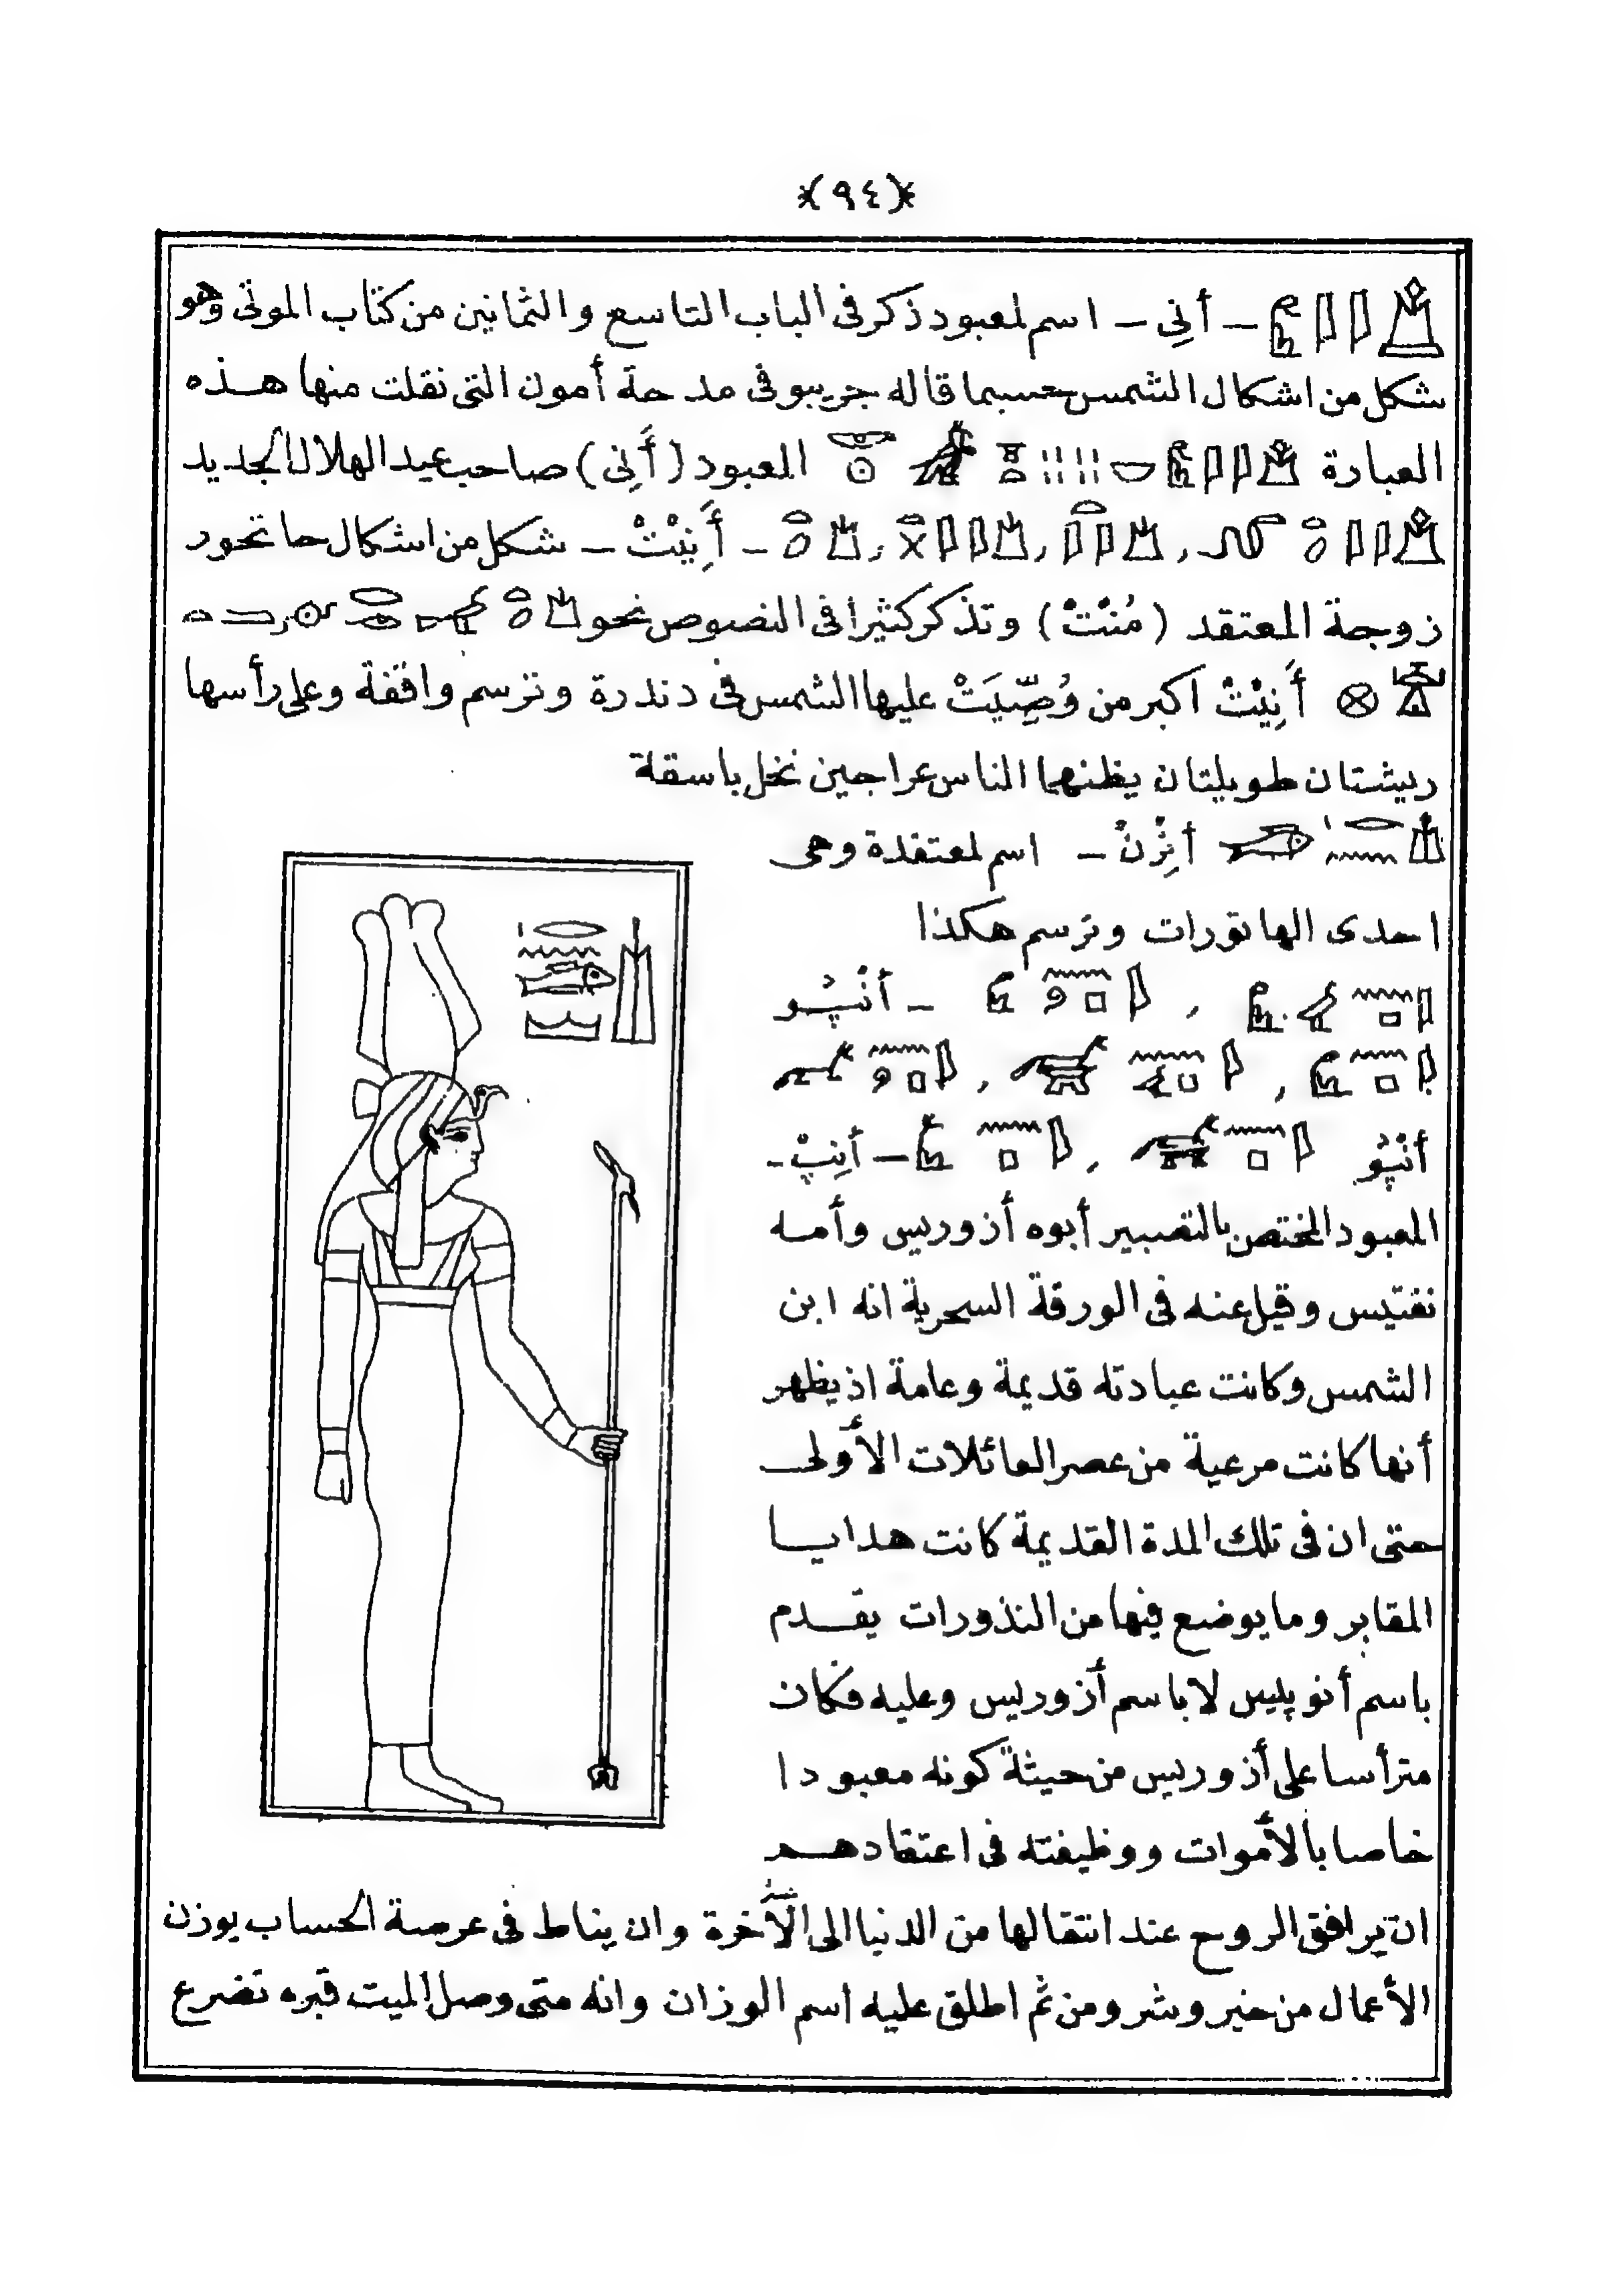 (٩٤)
— أَنِي — اسم لمعبود ذكر فى الباب التاسع والثمانين من كتاب الموتى وهو
شكل من اشكال الشمس حسبما قاله جريبو فى مدحة أمون التى نقلت منها هذه
العبارة المعبود (أَنِى) صاحب عيد الهلال الجديد
— أَنِيْتْ — شكل من اشكال حاتحور
زوجة المعتقد (مُنْتْ) وتذكر كثيرا فى النصوص نحو
أَنِيْتْ اكبر من وُصِّيَتْ عليها الشمس فى دندرة وترسم واقفة وعلى رأسها
ريشتان طويلتان يظنهما الناس عراجين نخل باسقة
أنْرِنْ — اسم لمعتقدة وهى
احدى الهاتورات وترسم هكذا
، — أنْپُو
، ،
أنْپُو ، — أنِپْ -
المعبود المختص بالتصبير أبوه أزوريس وأمه
نفتيس وقيل عنه فى الورقة السحرية انه ابن
الشمس وكانت عبادته قديمة وعامة اذ يظهر
أنها كانت مرعية من عصر العائلات الأولى
حتى ان فى تلك المدة القديمة كانت هدايا
المقابر وما يوضع فيها من النذورات يقدم
باسم أنوپيس لا باسم أزوريس وعليه فكان
مترأسا على أزوريس من حيثة كونه معبودا
خاصا بالأموات ووظيفته فى اعتقادهم
ان يرافق الروح عند انتقالها من الدنيا الى الآخرة وان يناط فى عرصة الحساب بوزن
الأعمال من خير وشر ومن ثم اطلق عليه اسم الوزان وانه متى وصل الميت قبره تضرع